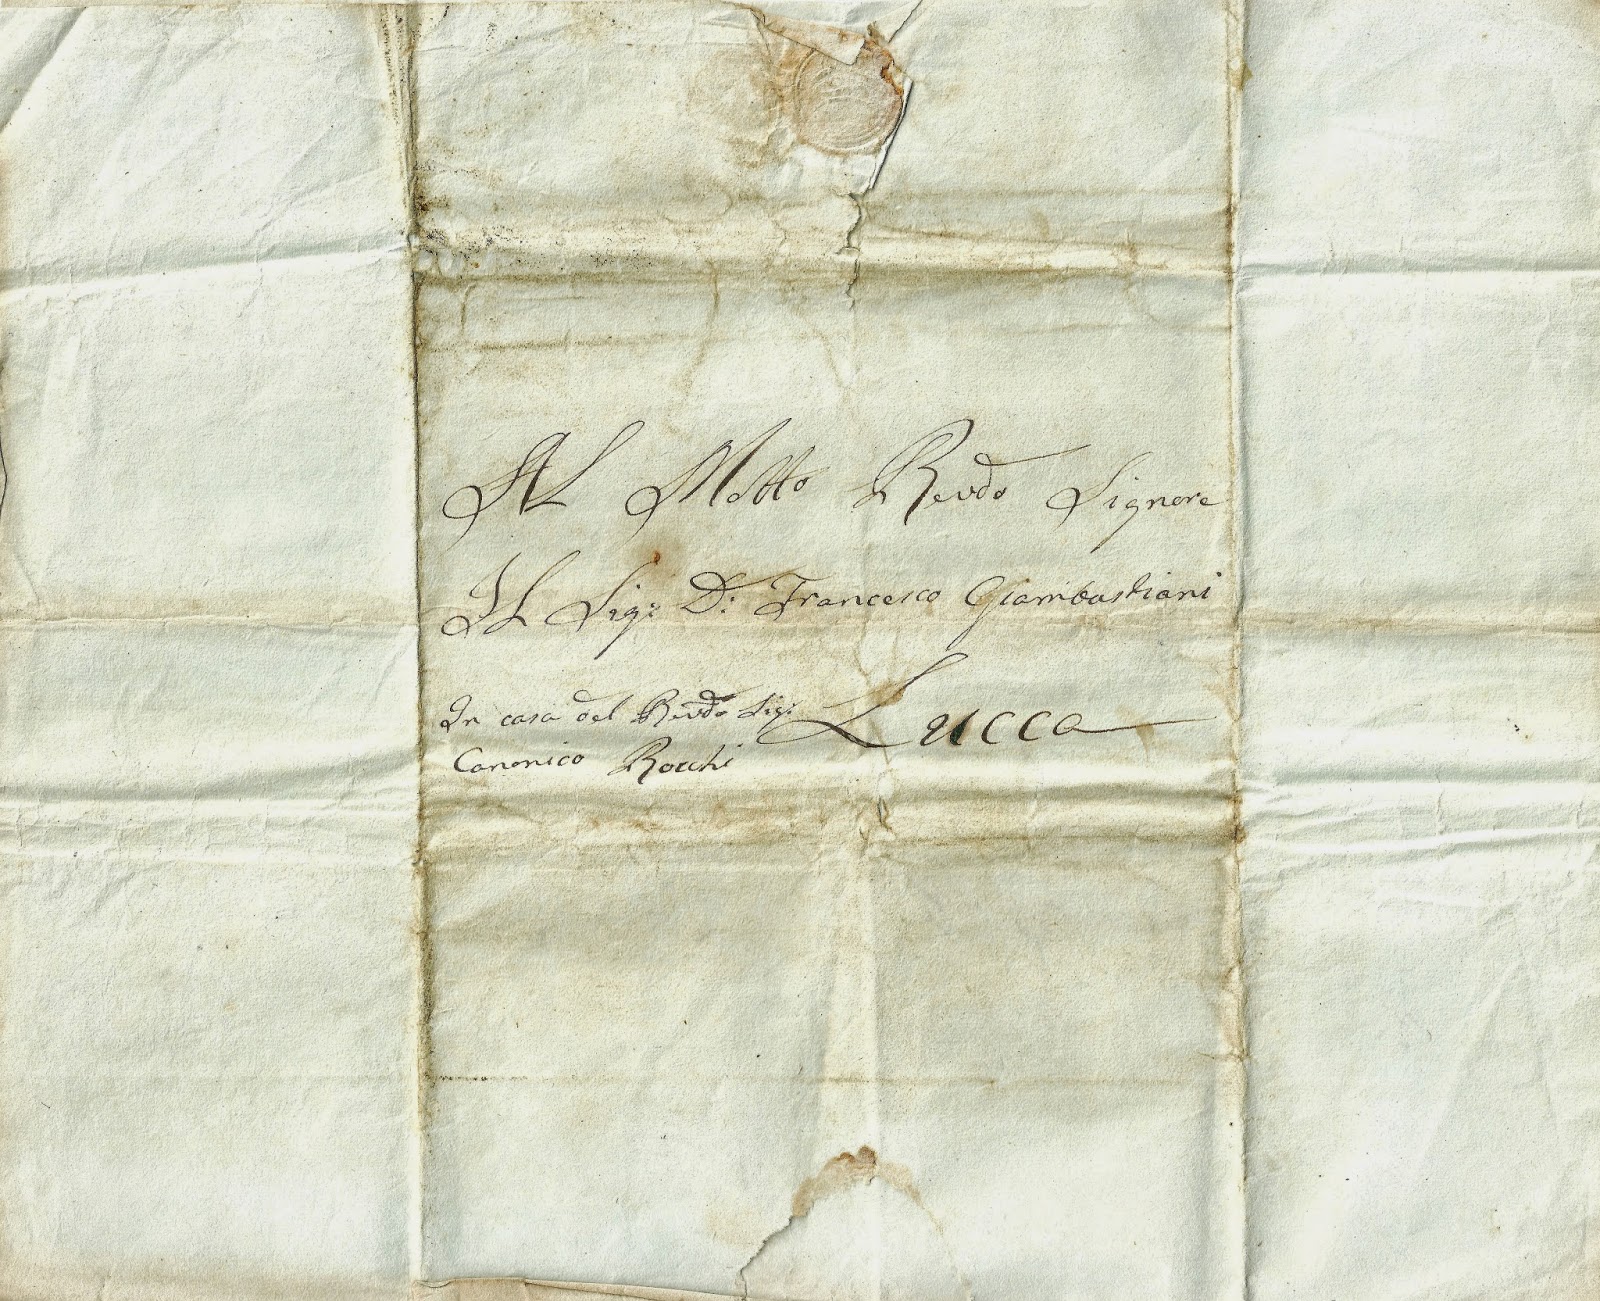 Al Molto Revdo Signore
Il Sig: D: Francesco Giambastiani
In casa del Revdo Sig: Lucca
Canonico Rocchi